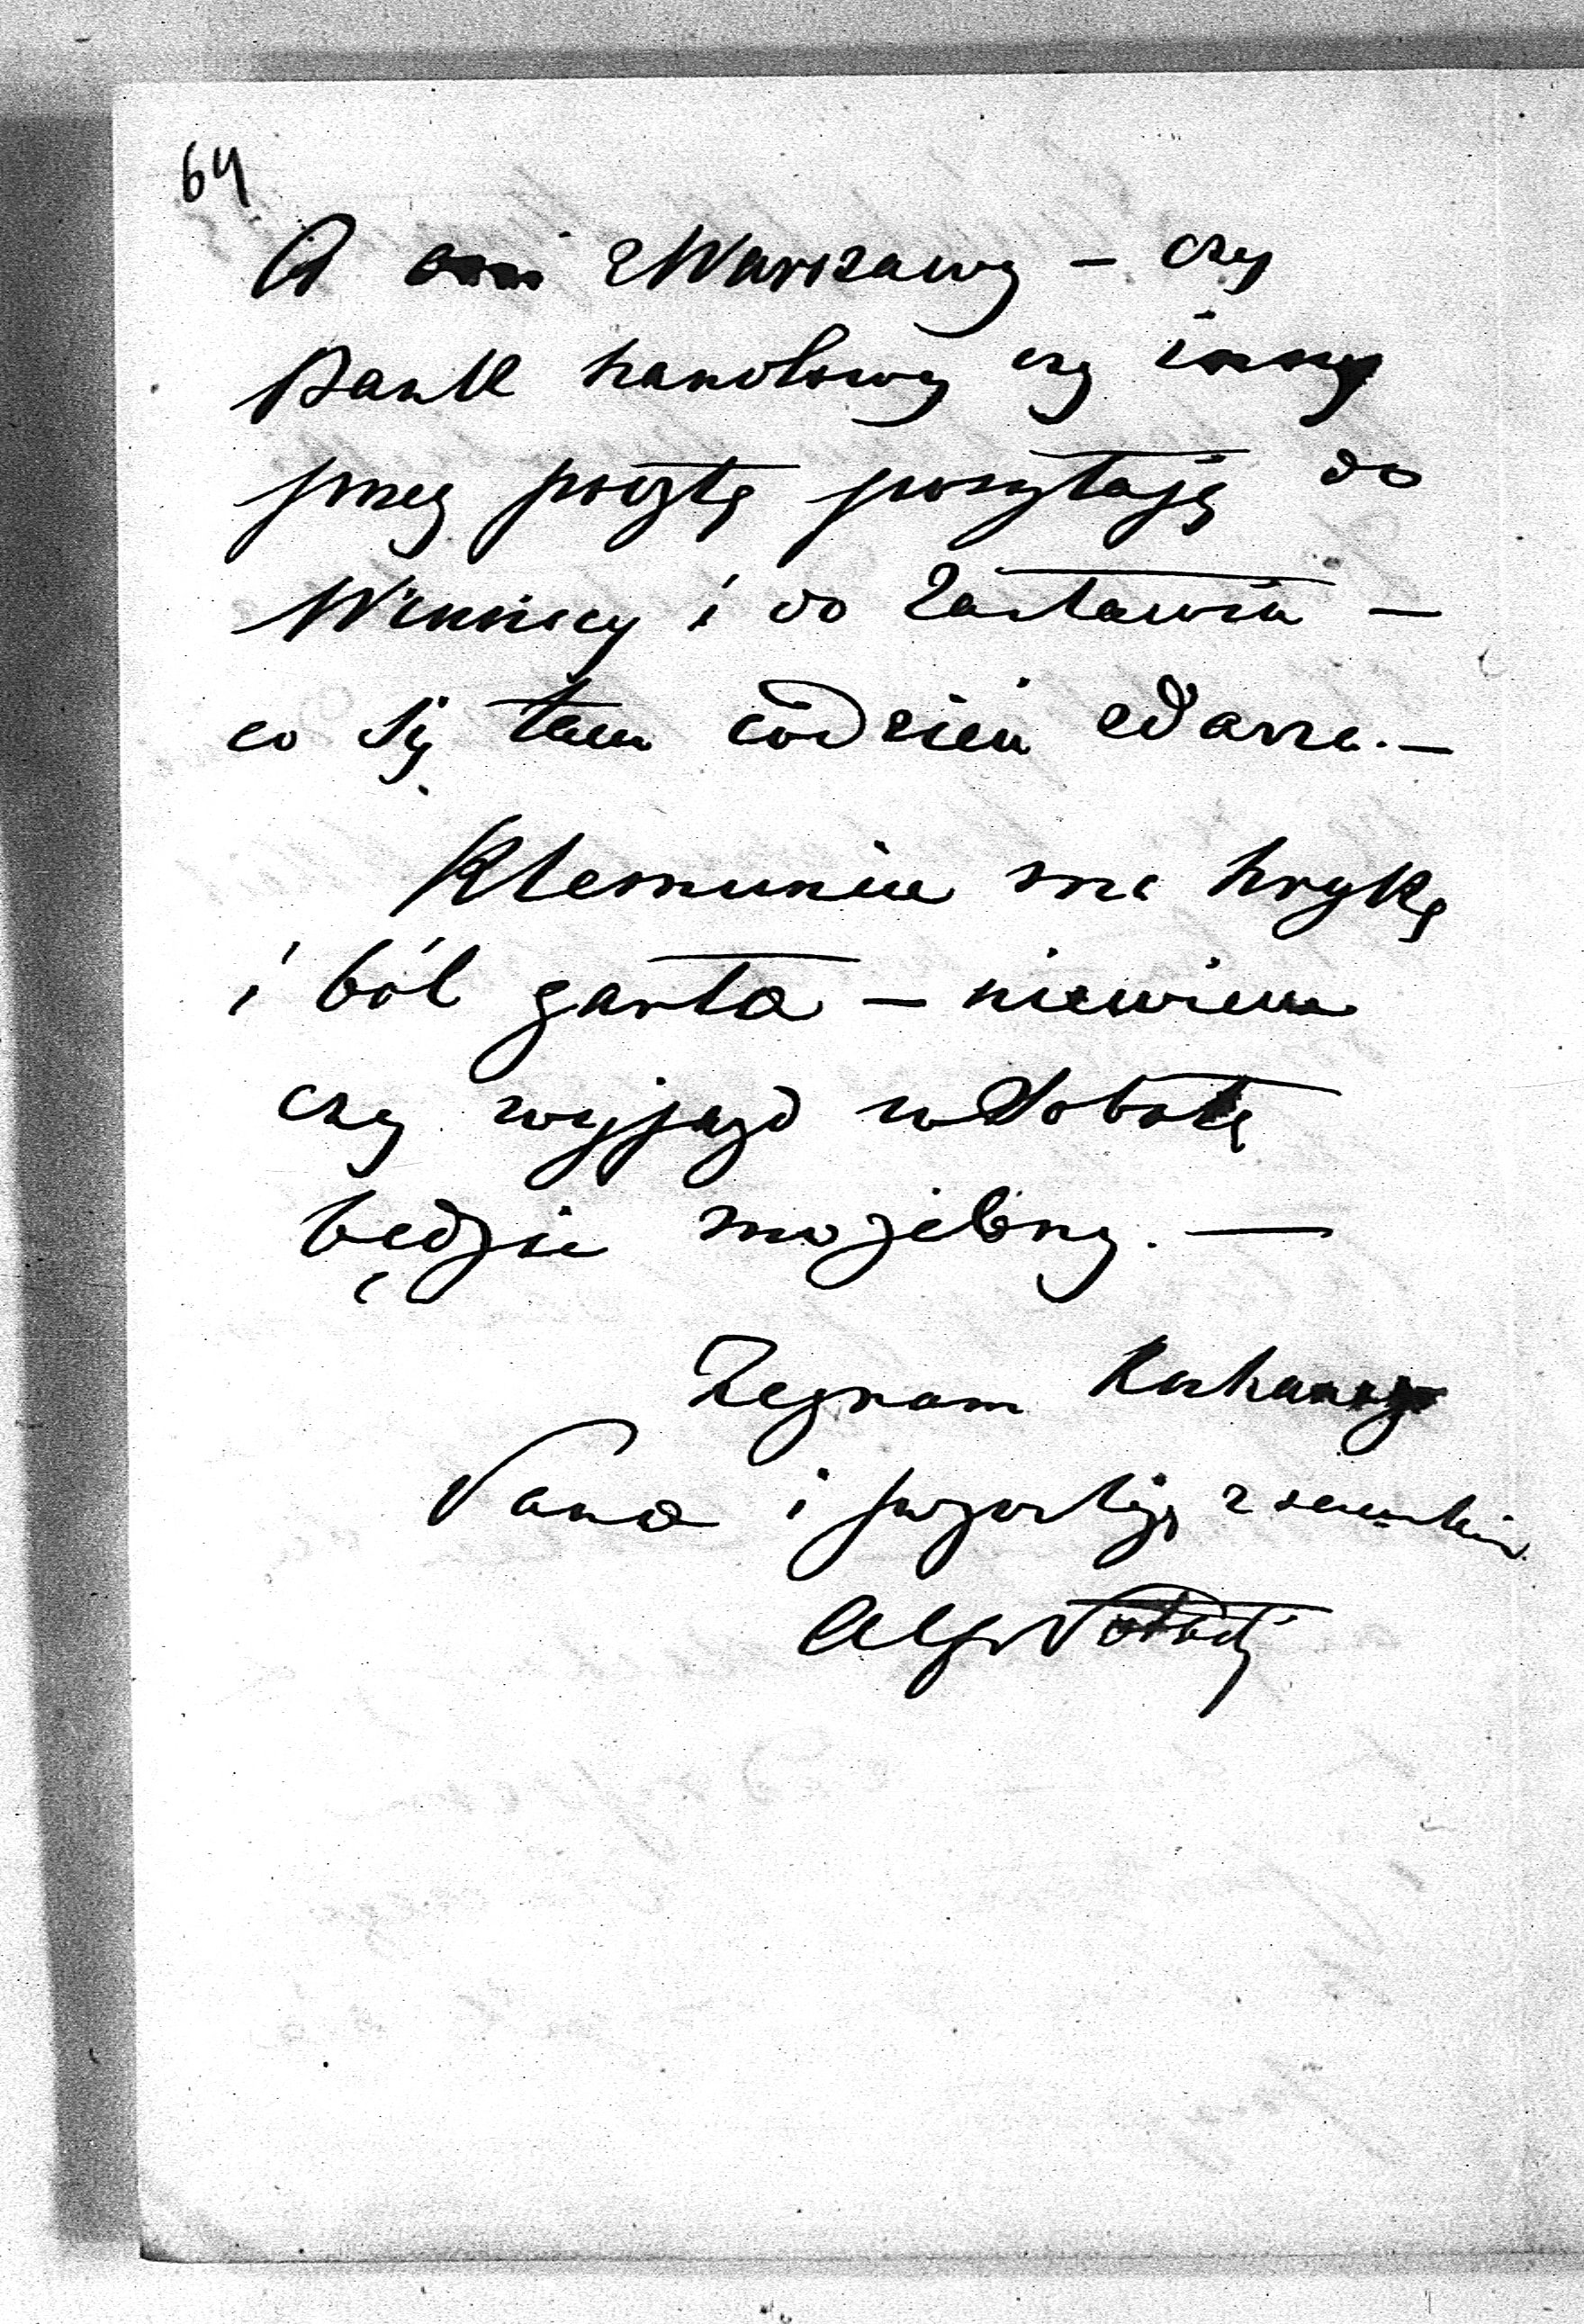 64
A oni z Warszawy – czy
Bank handlowy czy inny
przez pocztę posyłają do
Winnicy i do Zasławia –
co się tam codzień zdarza. –
Klemunia ma hrypkę
i ból gardła – niewiem
czy wyjazd w Sobotę
będzie możebny. –
Żegnam Kochanego
Pana i pozostaję z szacunkiem
Alfr Potocki